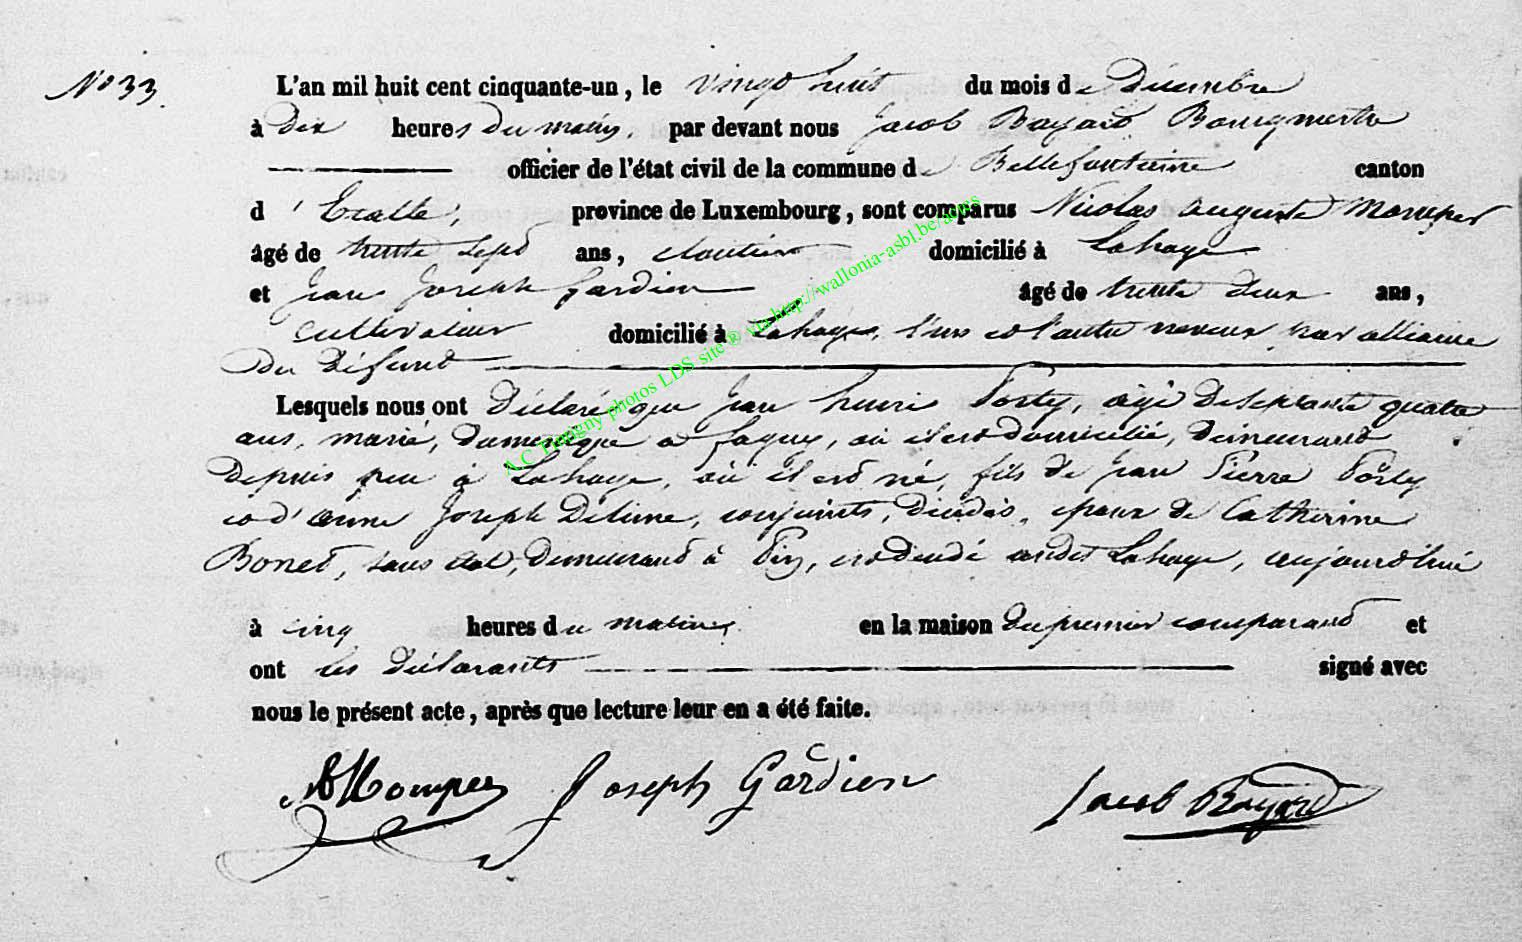 N° 33.
L'an mil huit cent cinquante-un, le vingt huit du mois de Décembre
à dix heures du matin, par devant nous Jacob Bayard Bourgmestre
officier de l'état civil de la commune de Bellefontaine canton
d'Etalle, province de Luxembourg, sont comparus Nicolas auguste
âgé de trente sept ans, cloutier domicilié à Lahage
et Jean Joseph Gardien âgé de trente deux ans,
cultivateur domicilié à Lahage, l'un et l'autre neveux par alliance
du défunt
Lesquels nous ont déclaré que Jean henri âgé de septante quatre
ans, marié, domestique a fagny, où il est domicilié, demeurant
depuis peu à Lahage, où il est né, fils de jean Pierre
et d'anne Joseph conjoints, décédés, epoux de Catherine
sans état, demeurant à Pin, est décédé audit Lahage, aujourd'hui
à cinq heures du matin, en la maison du premier comparant et
ont les déclarants signé avec
nous le présent acte, après que lecture leur en a été faite.
Joseph Gardien Jacob Bayard
photos LDS site ® via http://wallonia-asbl.be/actes